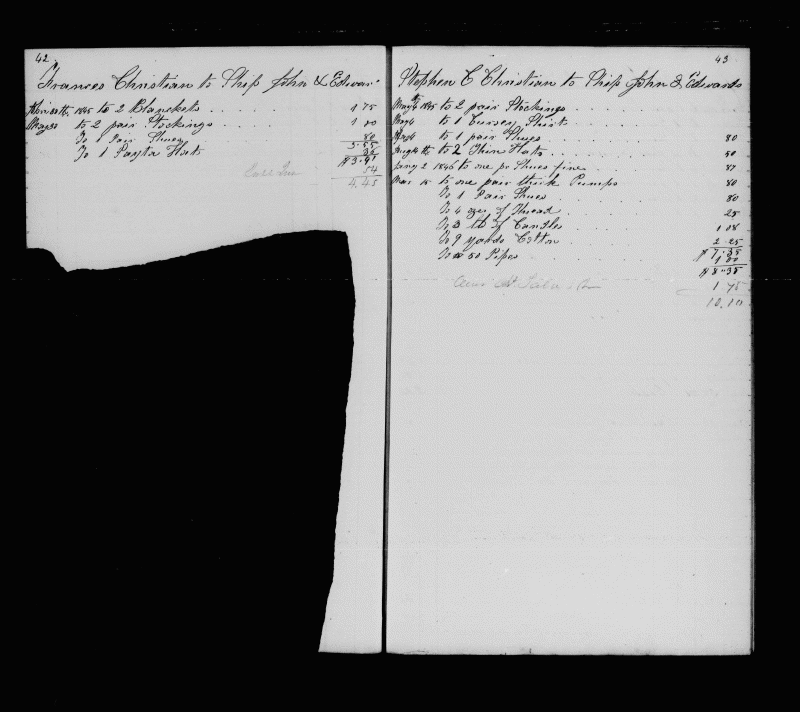 42
Frances Christian to Ship John & Edwar
1845 to 2 Blanckets . . . . . 1 75
May 30 to 2 pair Stockings . . . . . 1 00
To 1 Pair Shues 80
3.55
To 1 Payta Hat 36
$3.91
54
4,45
43
Stephen C Christian to Ship John & Edwards
May 1845 to 2 pair Stockings . . . .
May 4 to 1 Cursey Shirt . . . .
May 4 to 1 pair Shues . . . . 80
to 2 Thin Hats . . . . 50
Jany 2 1846 to one pr Shues fine . . . 87
Mar 15 to one pair thick Pumps 80
To 1 Pair Shues . . . . 80
To 4 ozs of Thread . . . . 25
To 3 lb of Candles . . . . 1 08
To 9 yards Cotton . . . . 2.25
$7.35
To 50 Pipes . . . . 1 00
$8.35
1 75
10.10